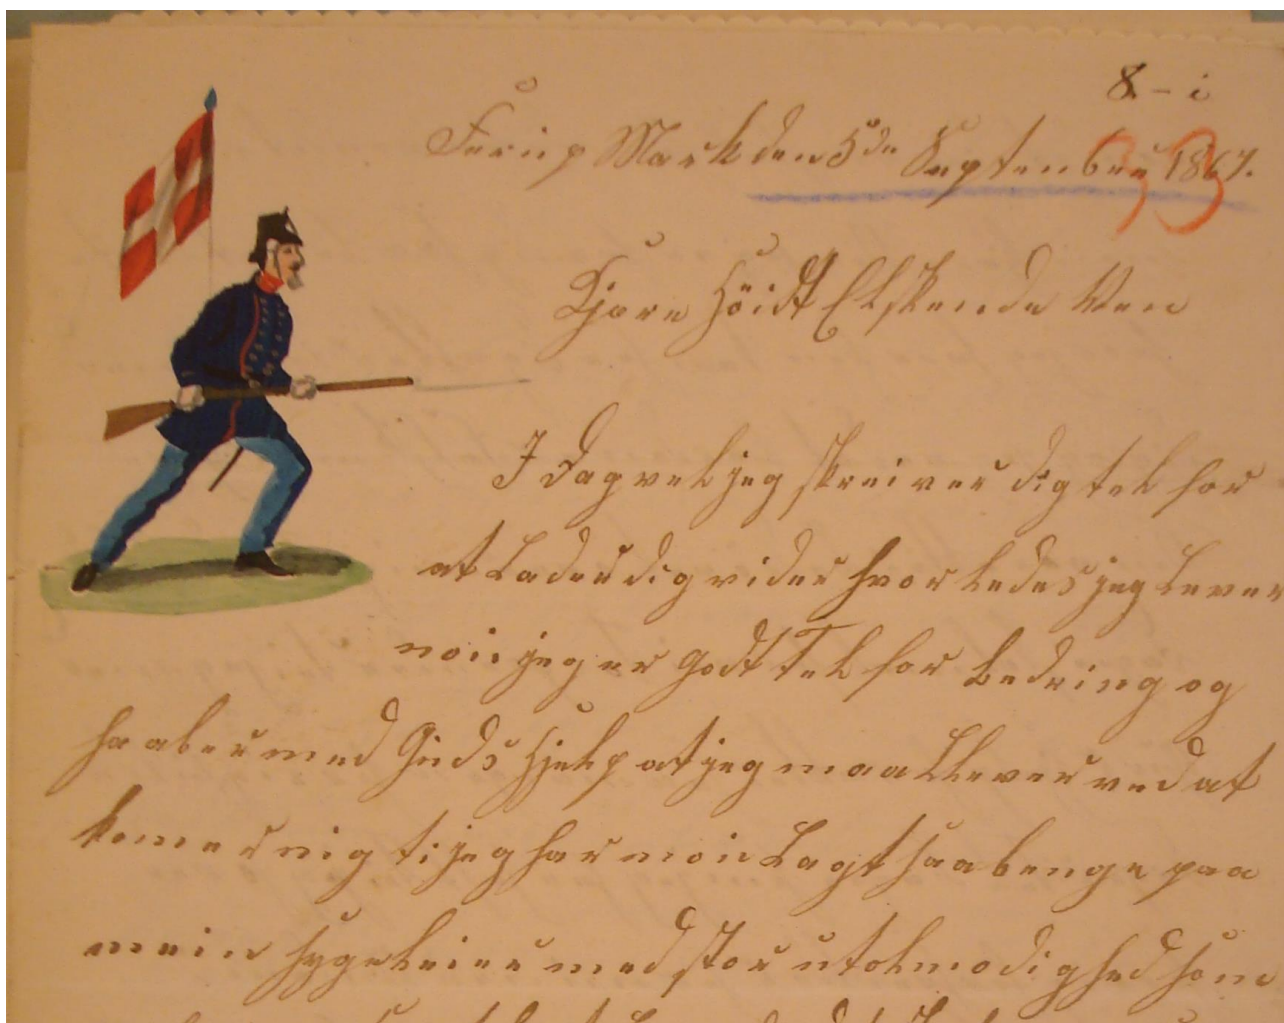 8 - i
33
Ferup Mark den 5de September 1867.
Kjære Höidt Elskende Ven
I Dag vel jeg skreiver dig tel for
at Lader dig vider hvorledes jeg Lever
noi jeg er godt Tel for bedring og
haaber med Guds Hjelp at jeg maa Llever ved at
komer mig ti jeg har noi Lagt saa benge paa
mein sygeleier med stor utolmodighed som